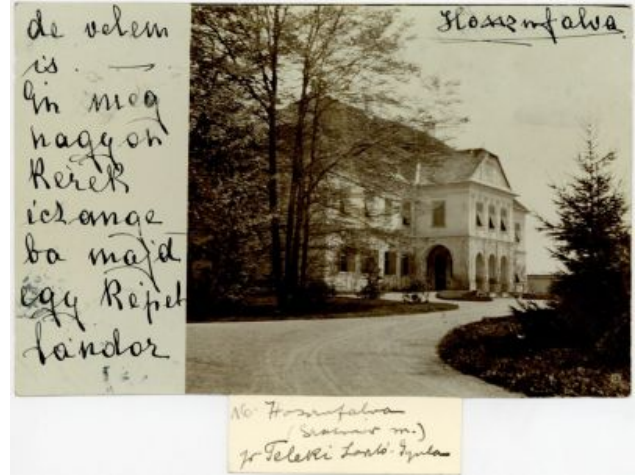 de velem
is. —
Én meg
nagyon
kérek
ichange
ba majd
egy képet
Sándor
Hosszufalva
Hosszufalva
(Szatmár m.)
gr Teleki László-Gyula